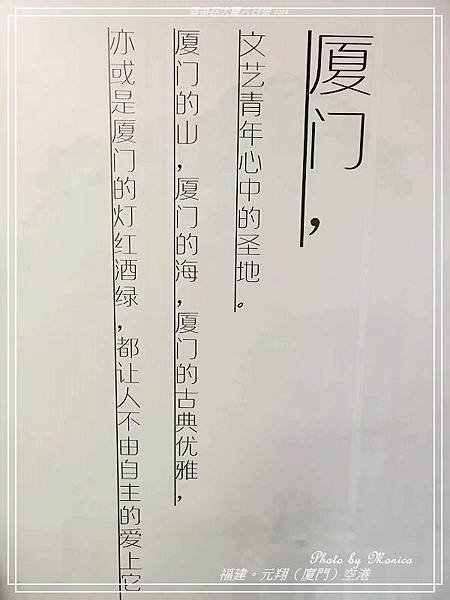 厦门，
文艺青年心中的圣地。
厦门的山，厦门的海，厦门的古典优雅，
亦或是厦门的灯红酒绿，都让人不由自主的爱上它
Photo by Monica
福建。元翔（廈門）空港